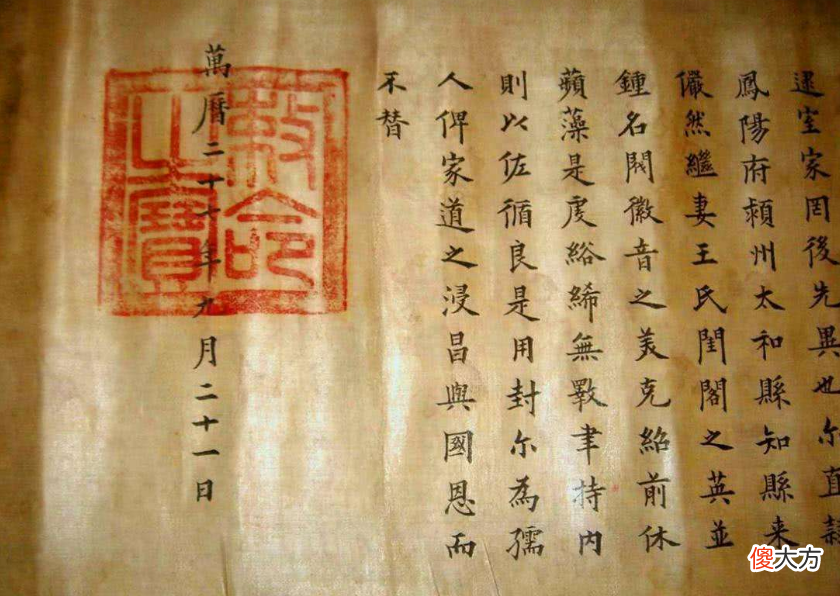 逮室家罔後先異也尔直隸
鳳陽府潁州太和縣知縣来
儼然繼妻王氏閨閣之英並
鍾名閥徽音之美克紹前休
蘋藻是虔綌絺無斁聿持内
則以佐循良是用封尔為孺
人俾家道之浸昌與國恩而
不替
萬曆二十七年九月二十一日
敕命之寶
傻大方